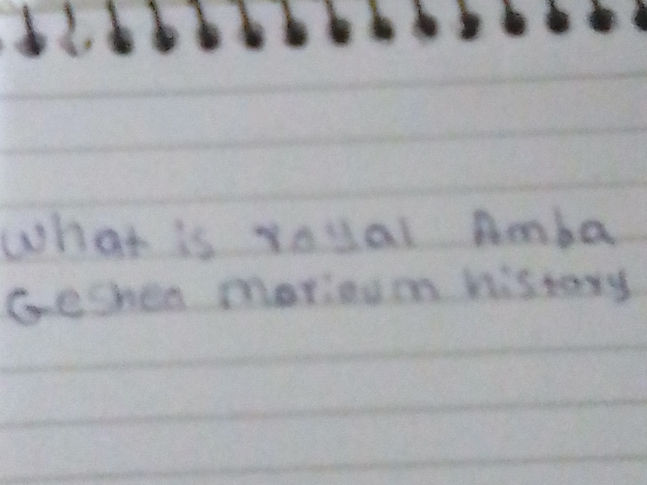 What is royal Amba
Geshen Marioum history